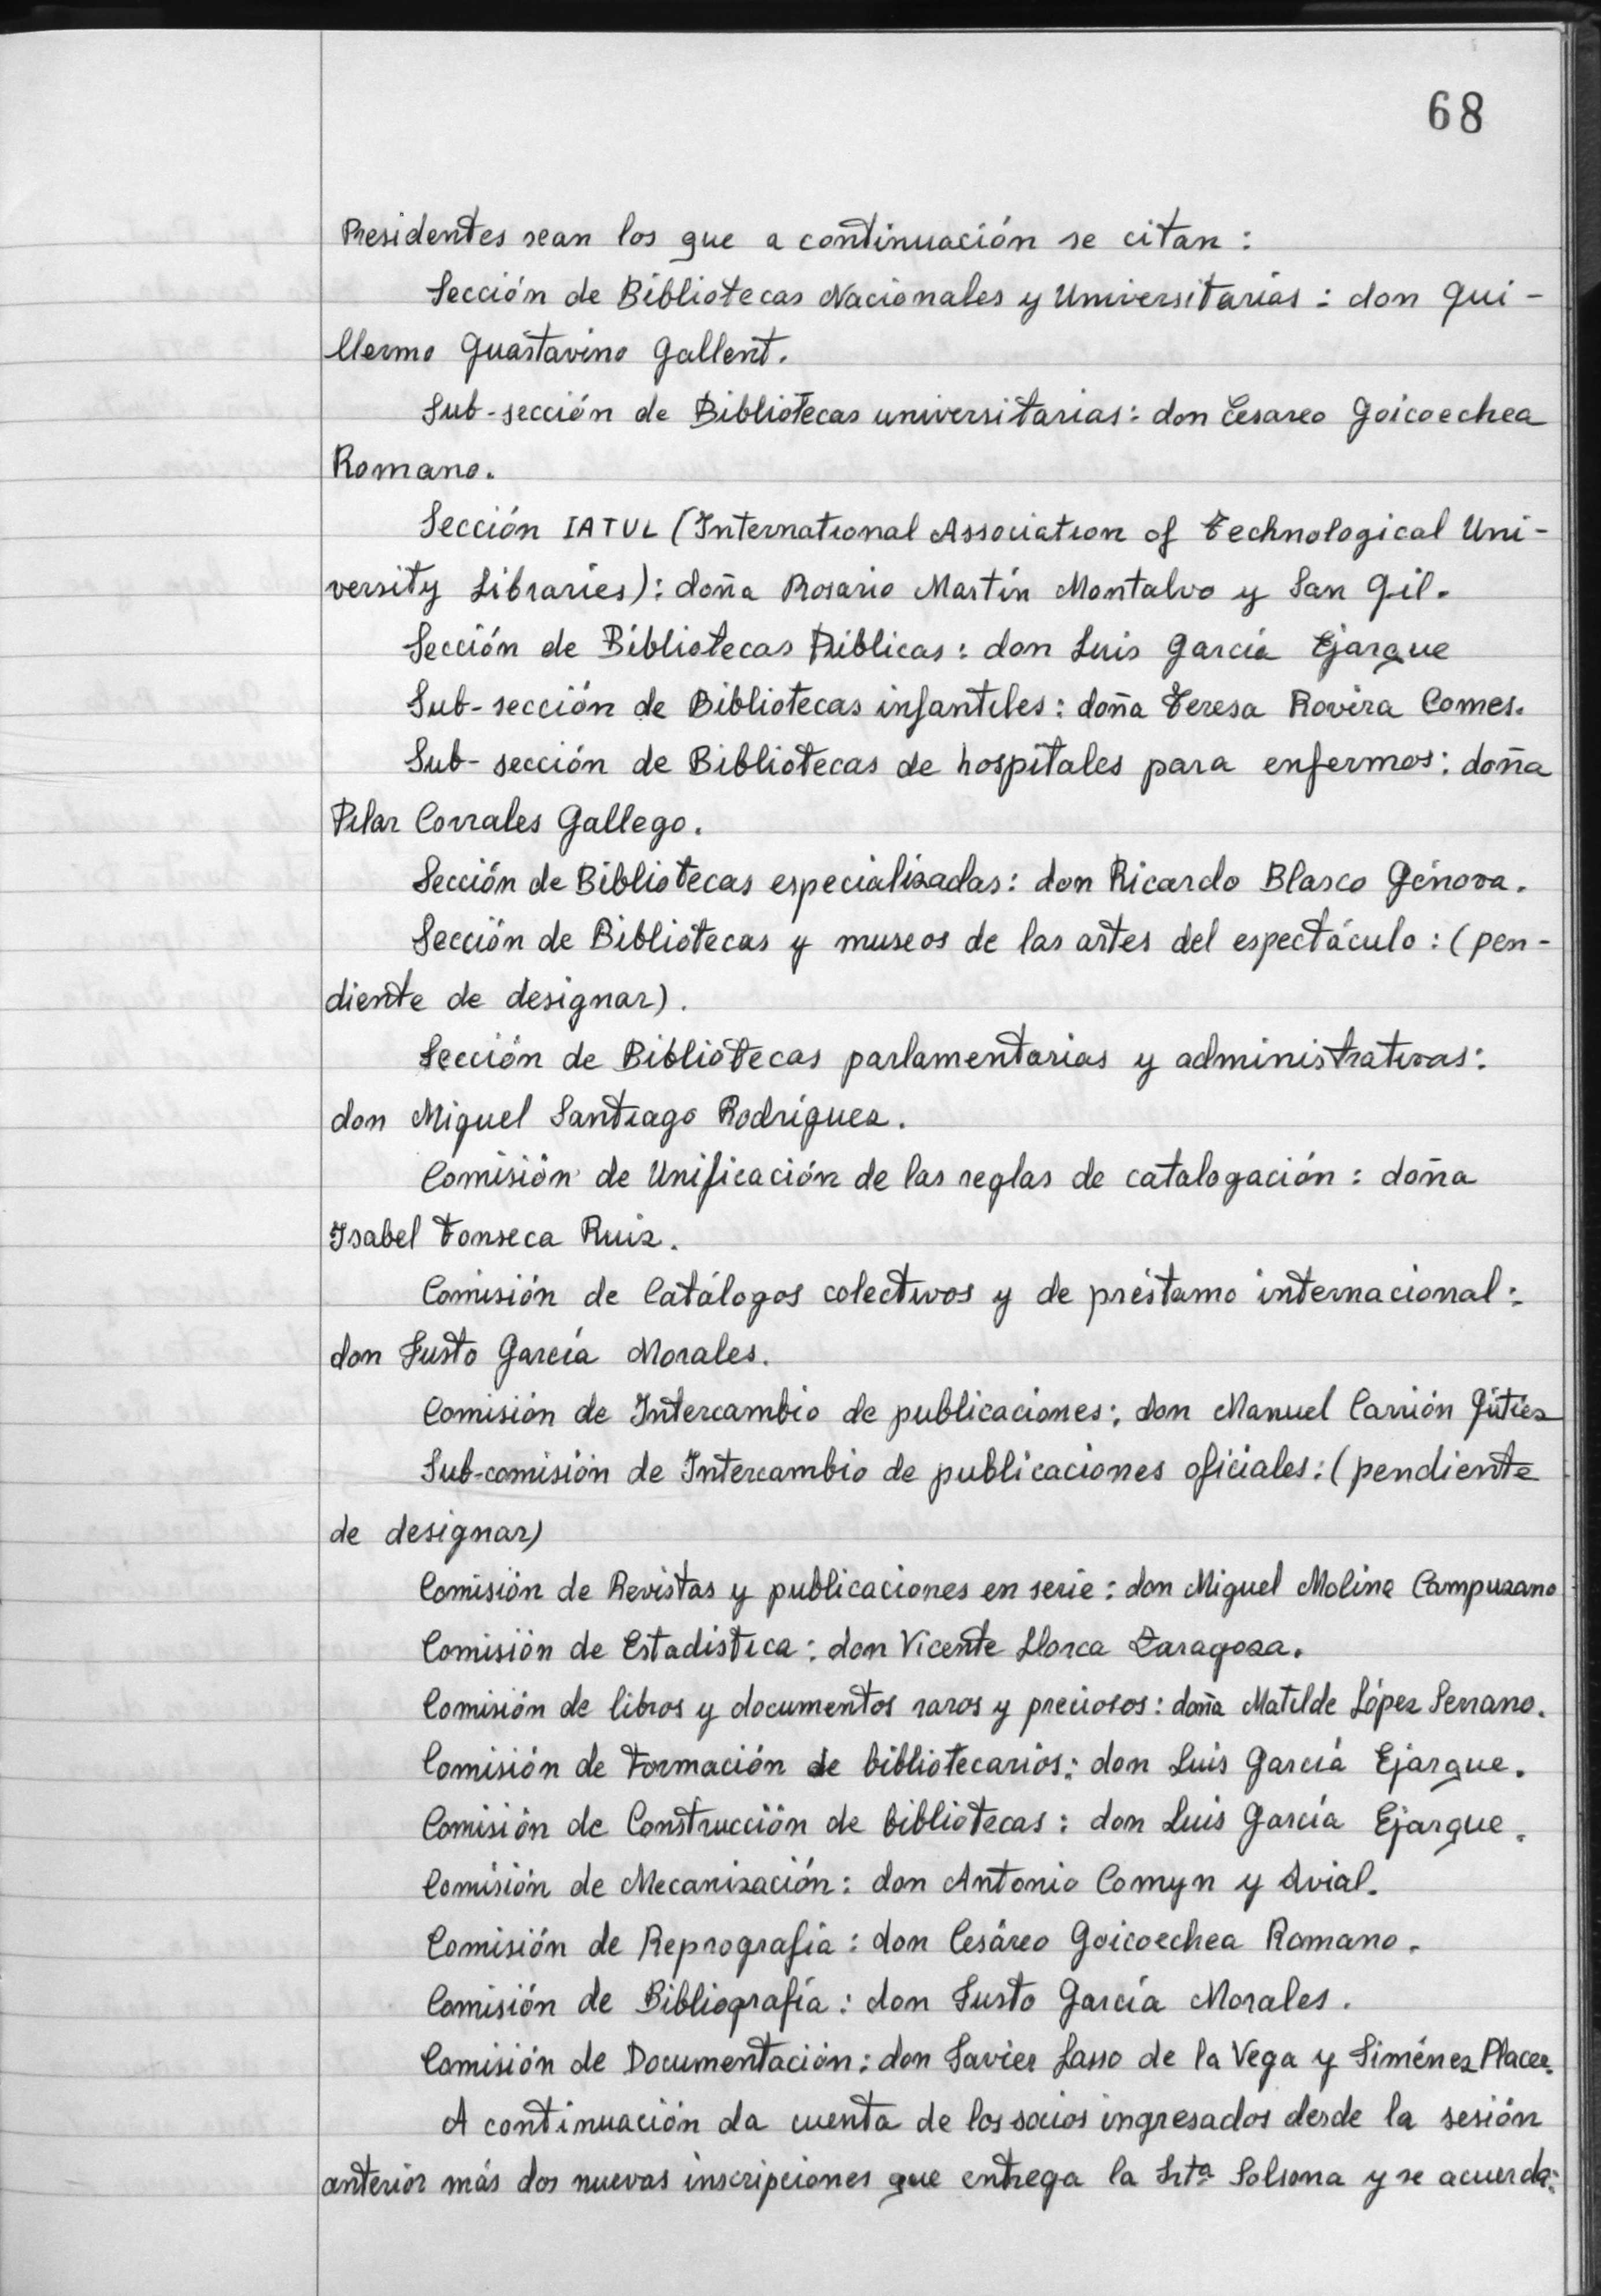 68
Presidentes sean los que a continuación se citan:
Sección de Bibliotecas Nacionales y Universitarias: don Gui-
llermo Guastavino Gallent.
Sub-sección de Bibliotecas universitarias: don Cesareo Goicoechea
Romano.
Sección IATUL (International Association of Technological Uni-
versity Libraries): doña Rosario Martín Montalvo y San Gil.
Sección de Bibliotecas Públicas: don Luis García Ejarque
Sub-sección de Bibliotecas infantiles: doña Teresa Rovira Comes.
Sub-sección de Bibliotecas de hospitales para enfermos: doña
Pilar Corrales Gallego.
Sección de Bibliotecas especializadas: don Ricardo Blasco Génova.
Sección de Bibliotecas y museos de las artes del espectáculo: (pen-
diente de designar).
Sección de Bibliotecas parlamentarias y administrativas:
don Miguel Santiago Rodríguez.
Comisión de Unificación de las reglas de catalogación: doña
Isabel Fonseca Ruiz.
Comisión de Catálogos colectivos y de préstamo internacional:
don Justo García Morales.
Comisión de Intercambio de publicaciones: don Manuel Carrión Gútiez
Sub-comisión de Intercambio de publicaciones oficiales: (pendiente
de designar)
Comisión de Revistas y publicaciones en serie: don Miguel Molina Campuzano
Comisión de Estadística: don Vicente Llorca Zaragoza.
Comisión de libros y documentos raros y preciosos: doña Matilde López Serrano.
Comisión de Formación de bibliotecarios: don Luis García Ejarque.
Comisión de Construcción de bibliotecas: don Luis García Ejarque.
Comisión de Mecanización: don Antonio Comyn y Avial.
Comisión de Reprografía: don Cesáreo Goicoechea Romano.
Comisión de Bibliografía: don Justo García Morales.
Comisión de Documentación: don Javier Lasso de la Vega y Jiménez Placer.
A continuación da cuenta de los socios ingresados desde la sesión
anterior más dos nuevas inscripciones que entrega la Srtª Solsona y se acuerda: